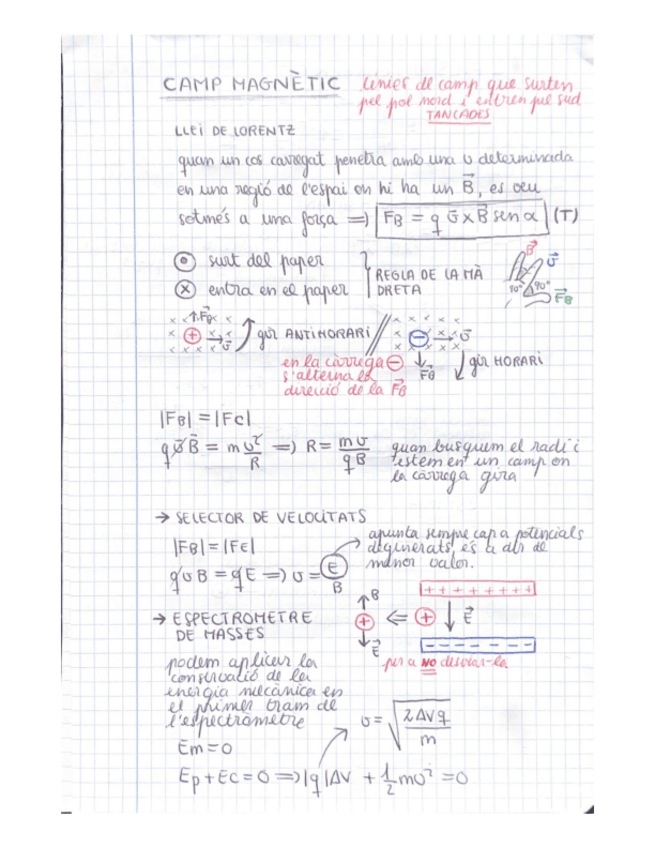 CAMP MAGNÈTIC línies de camp que surten
pel pol nord i entren pel sud
TANCADES
LLEI DE LORENTZ
quan un cos carregat penetra amb una v determinada
en una regió de l'espai on hi ha un B⃗, es veu
sotmés a una força => F_B = q v⃗ x B⃗ sen α (T)
⊙ surt del paper
⊗ entra en el paper
REGLA DE LA MÀ
DRETA
B⃗
v⃗
90° 90°
F⃗B
x x x x x
F⃗B
+ v⃗
gir ANTIHORARI
x x x x x
- v⃗
F⃗B
gir HORARI
en la càrrega ⊖
s'alterna la
direcció de la F⃗B
|FB| = |Fc|
q v⃗ B⃗ = m v²/R => R = mv/qB
quan busquem el radi i
estem en un camp on
la càrrega gira
→ SELECTOR DE VELOCITATS
|FB| = |FE|
q v B = q E => v = E/B
apunta sempre cap a potencials
de menor valor.
+ + + + + + + +
B
+ <= + E⃗
E⃗
- - - - - - - -
per a NO desviar-la
→ ESPECTROMETRE
DE MASSES
podem aplicar la
conservació de la
energia mecànica en
el primer tram de
l'espectròmetre
v = √(2ΔVq/m)
Em = 0
Ep + Ec = 0 => |q|ΔV + 1/2 mv² = 0